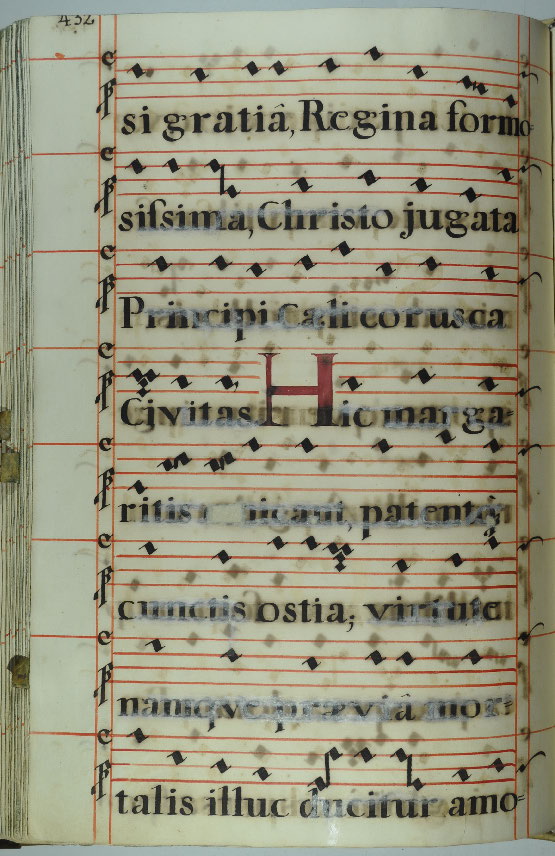 432
si gratiâ, Regina formo-
sissima, Christo jugata
Principi Cæli corusca
Civitas Hic marga-
ritis nicant, patentq̃
cunctis ostia; virtute
namqve præviâ mor-
talis illuc ducitur amo-